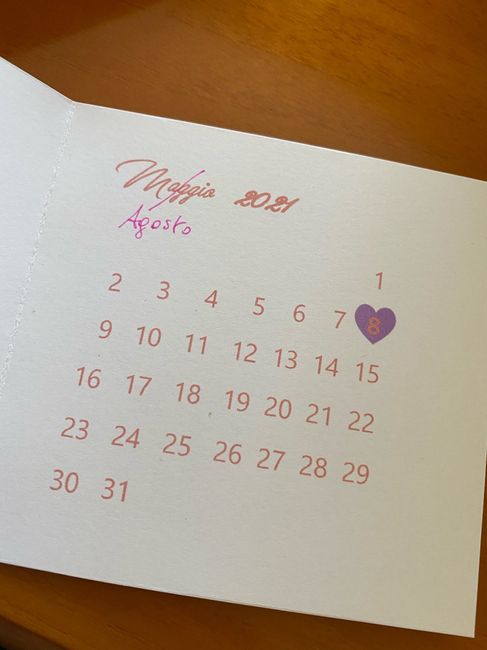 Maggio 2021
Agosto
1
2 3 4 5 6 7 8
9 10 11 12 13 14 15
16 17 18 19 20 21 22
23 24 25 26 27 28 29
30 31